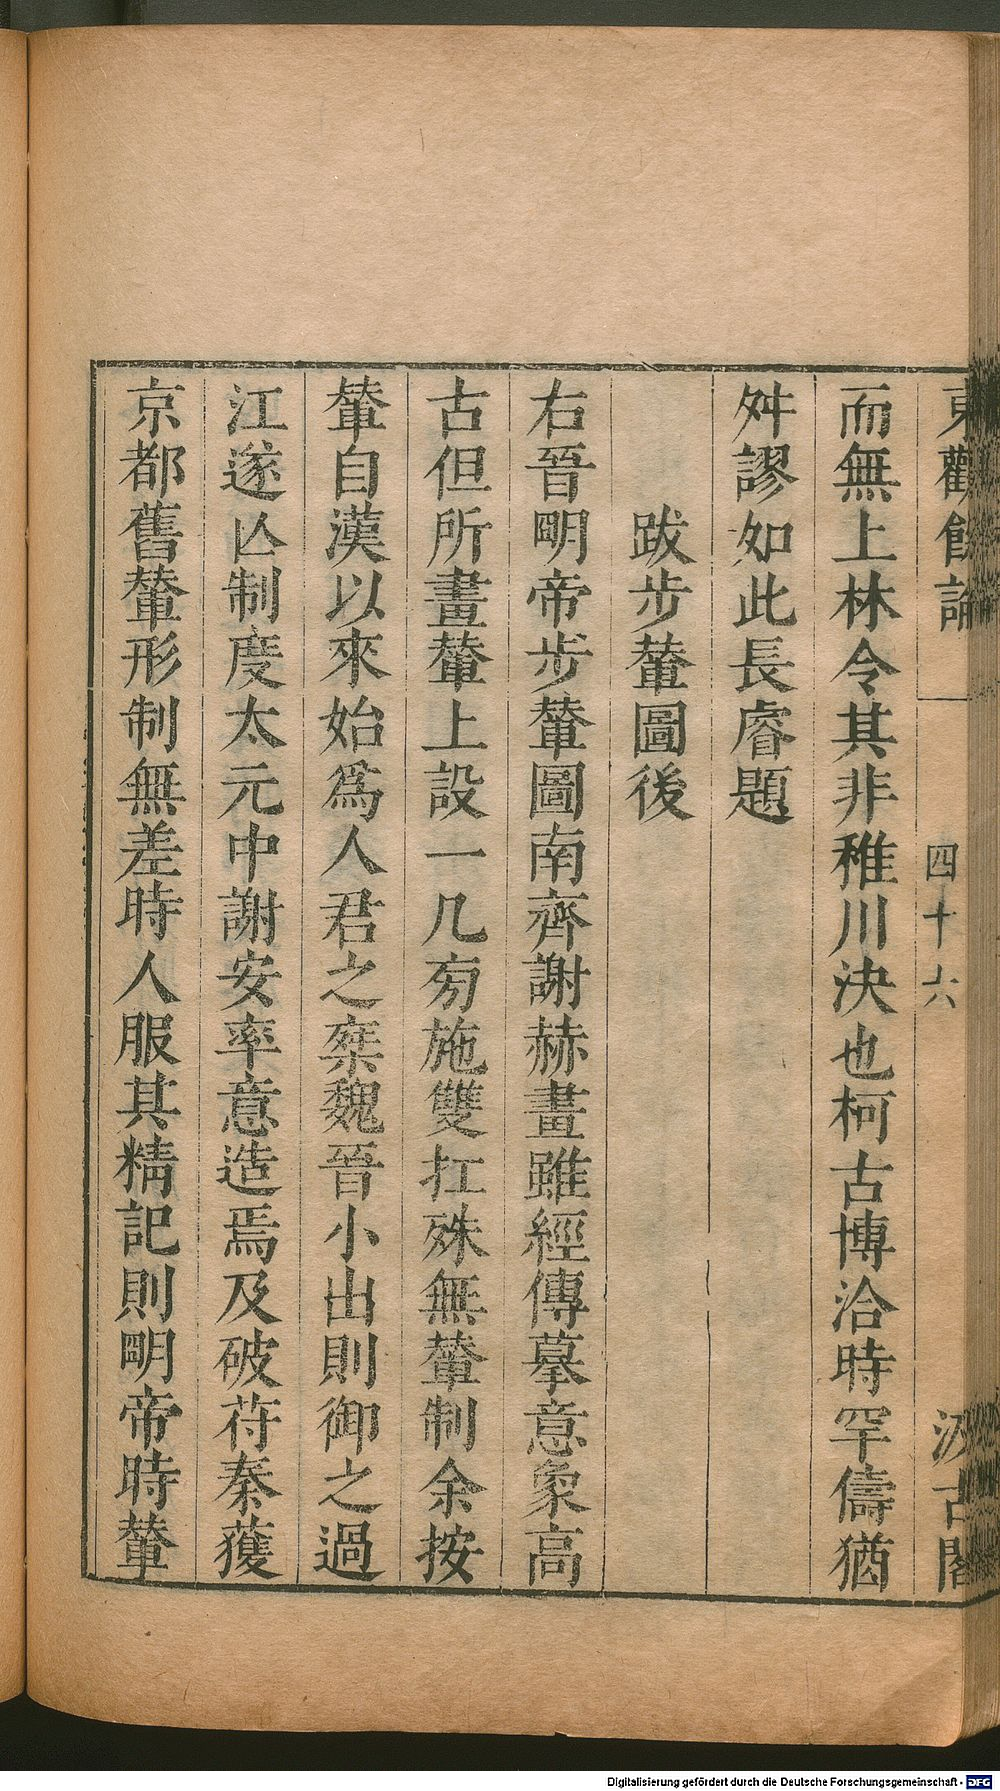 東觀餘論
四十六
汲古閣
而無上林令其非稚川決也柯古博洽時罕儔猶
舛謬如此長睿題
跋步輦圖後
右晉朙帝步輦圖南齊謝赫畫雖經傳摹意象高
古但所畫輦上設一几㫄施雙扛殊無輦制余按
輦自漢以來始爲人君之椉魏晉小出則御之過
江遂亾制度太元中謝安率意造焉及破苻秦獲
京都舊輦形制無差時人服其精記則朙帝時輦
Digitalisierung gefördert durch die Deutsche Forschungsgemeinschaft - DFG